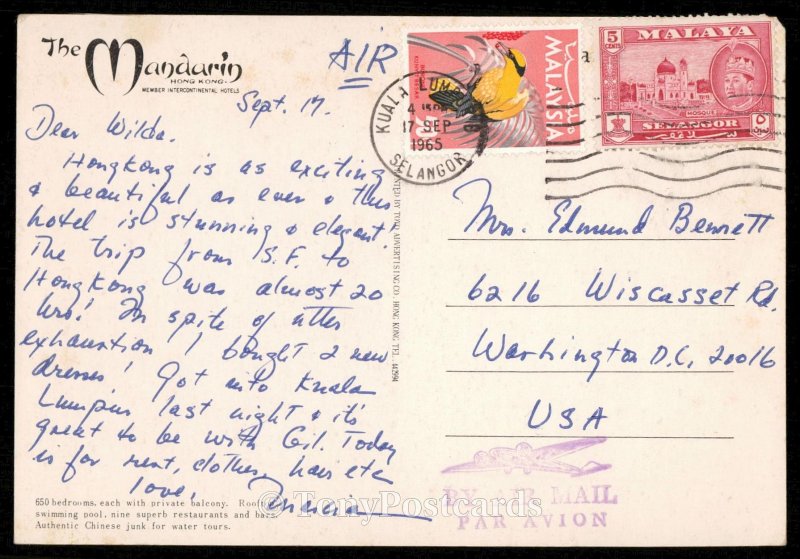 The Mandarin
HONG KONG
MEMBER INTERCONTINENTAL HOTELS
AIR
Sept. 17.
Dear Wilda.
Hongkong is as exciting
& beautiful as ever & this
hotel is stunning & elegant!
The trip from S.F. to
Hongkong was almost 20
hrs! In spite of utter
exhaustion I bought 2 new
dresses! Got into Kuala
Lumpur last night & it's
great to be with Gil. Today
is for rest, clothes, hair etc
love,
650 bedrooms, each with private balcony. Rooftop
swimming pool, nine superb restaurants and bars.
Authentic Chinese junk for water tours.
BY TORO ADVERTISING CO. HONG KONG. TEL.
KUALA LUMPUR
17 SEP
1965
SELANGOR
MALAYSIA
5 CENTS
MALAYA
MOSQUE
SELANGOR
Mrs. Edmund Bennett
6216 Wiscasset Rd.
Washington D.C. 20016
USA
BY AIR MAIL
PAR AVION
© TonyPostcards